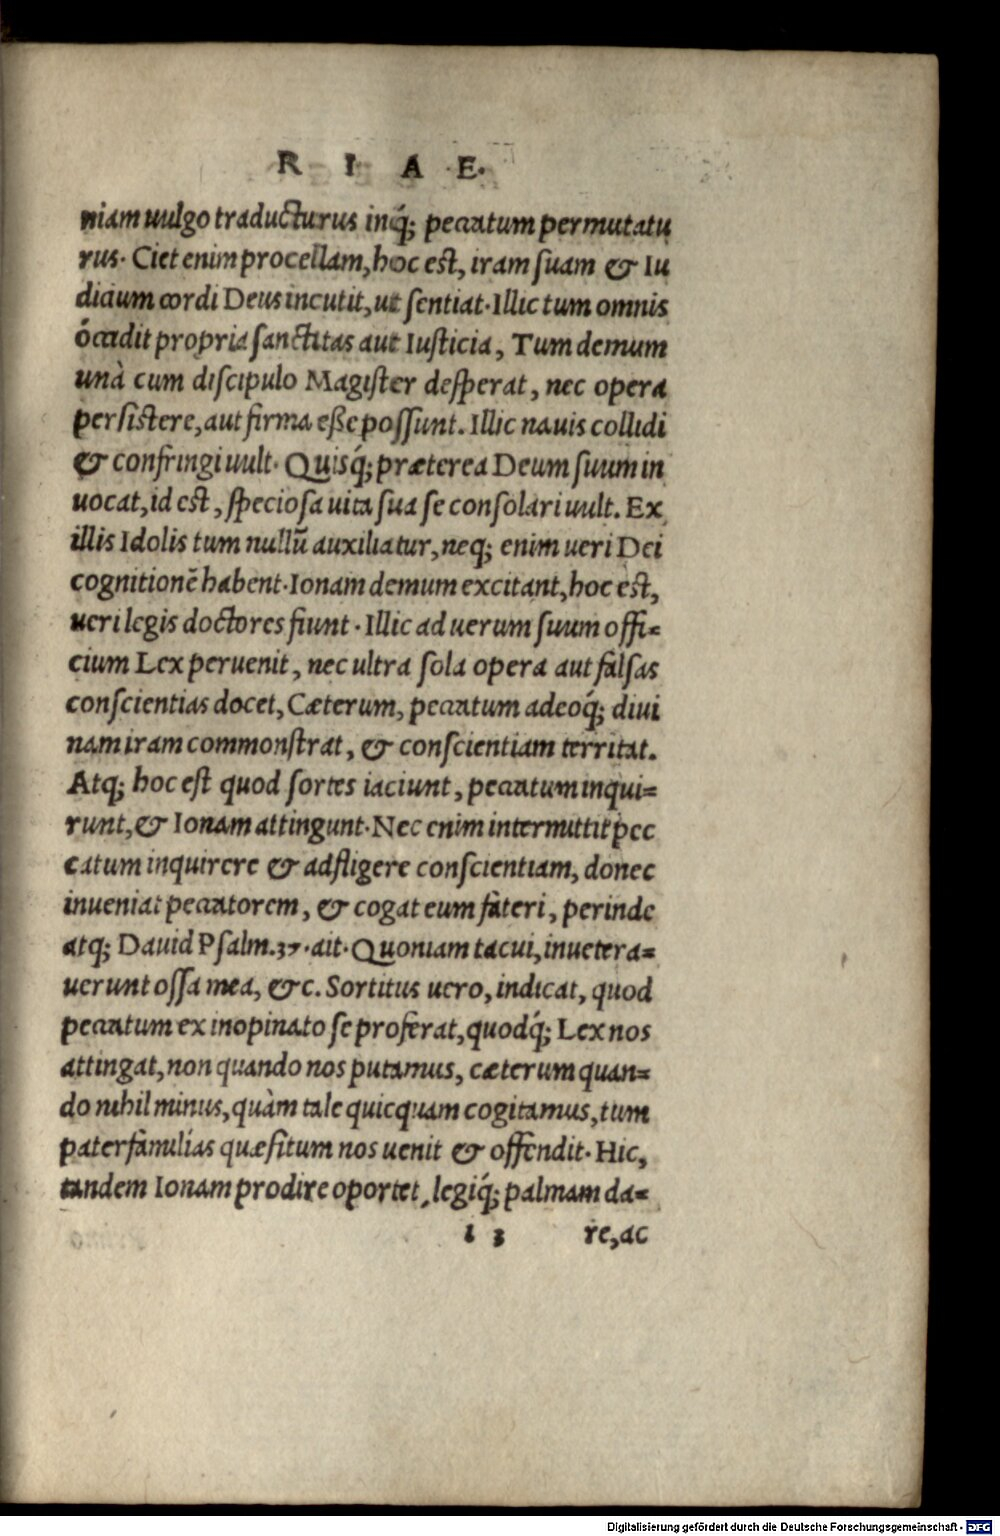 R I A E.
niam uulgo traducturus inq́; peccatum permutatu
rus. Ciet enim procellam, hoc est, iram suam & Iu
dicium cordi Deus incutit, ut sentiat. Illic tum omnis
óccidit propria sanctitas aut Iusticia, Tum demum
unà cum discipulo Magister desperat, nec opera
persistere, aut firma eße possunt. Illic nauis collidi
& confringi uult. Quisq́; præterea Deum suum in
uocat, id est, speciosa uita sua se consolari uult. Ex
illis Idolis tum nullũ auxiliatur, neq; enim ueri Dei
cognitionẽ habent. Ionam demum excitant, hoc est,
ueri legis doctores fiunt. Illic ad uerum suum offi=
cium Lex peruenit, nec ultra sola opera aut falsas
conscientias docet, Cæterum, peccatum adeoq́; diui
nam iram commonstrat, & conscientiam territat.
Atq; hoc est quod sortes iaciunt, peccatum inqui=
runt, & Ionam attingunt. Nec enim intermittit pec
catum inquirere & adfligere conscientiam, donec
inueniat peccatorem, & cogat eum fateri, perinde
atq; Dauid Psalm.37. ait. Quoniam tacui, inuetera=
uerunt ossa mea, &c. Sortitus uero, indicat, quod
peccatum ex inopinato se proferat, quodq́; Lex nos
attingat, non quando nos putamus, cæterum quan=
do nihil minus, quàm tale quicquam cogitamus, tum
paterfamiliás quæsitum nos uenit & offendit. Hic,
tandem Ionam prodire oportet, legiq́; palmam da=
I 3 re, ac
Digitalisierung gefördert durch die Deutsche Forschungsgemeinschaft - DFG